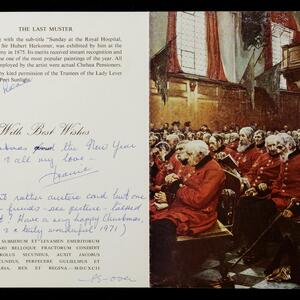 THE LAST MUSTER
with the sub-title "Sunday at the Royal Hospital,
Sir Hubert Herkomer, was exhibited by him at the
my in 1875. Its merits received instant recognition and
one of the most popular paintings of the year. All
ployed by the artist were actual Chelsea Pensioners.
by kind permission of the Trustees of the Lady Lever
Port Sunlight.
With Best Wishes
and the New Year
all my love -
rather austere card but one
friends - see picture - talked
! Have a very happy Christmas,
a truly wonderful 1971)
SUBSIDIUM ET LEVAMEN EMERITORUM
BELLOQUE FRACTORUM CONDIDIT
ROLUS SECUNDUS, AUXIT JACOBUS
SECUNDUS, PERFECERE GULIELMUS ET
ARIA, REX ET REGINA—MDCXCII
PS-over